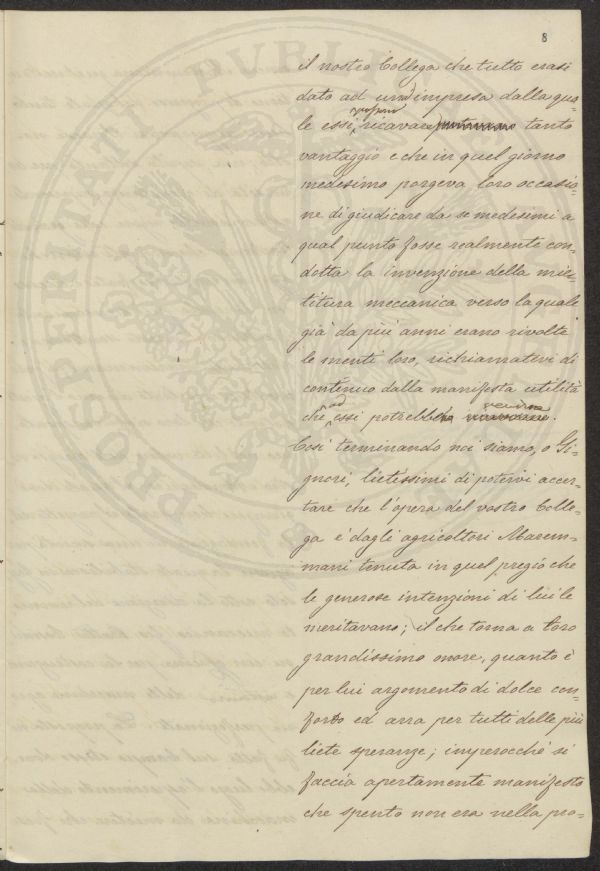 8
il nostro Collega che tutto erasi
dato ad una impresa dalla qua-
le essi ricavare tanto
vantaggio e che in quel giorno
medesimo porgeva loro occasio-
ne di giudicare da se medesimi a
qual punto fosse realmente con-
dotta la invenzione della mie-
titura meccanica verso la quale
già da più anni erano rivolte
le menti loro, richiamatevi di
continuo dalla manifesta utilità
che ad essi potrebbe venirne.
Così terminando noi siamo, o Si-
gnori, lietissimi di potervi accer-
tare che l'opera del vostro Colle-
ga è dagli agricoltori Marem-
mani tenuta in quel pregio che
le generose intenzioni di lui le
meritavano; il che torna a loro
grandissimo onore, quanto è
per lui argomento di dolce con-
forto ed arra per tutti delle più
liete speranze; imperocchè si
faccia apertamente manifesto
che spento non era nella pro-
PROSPERITATI PUBLICAE